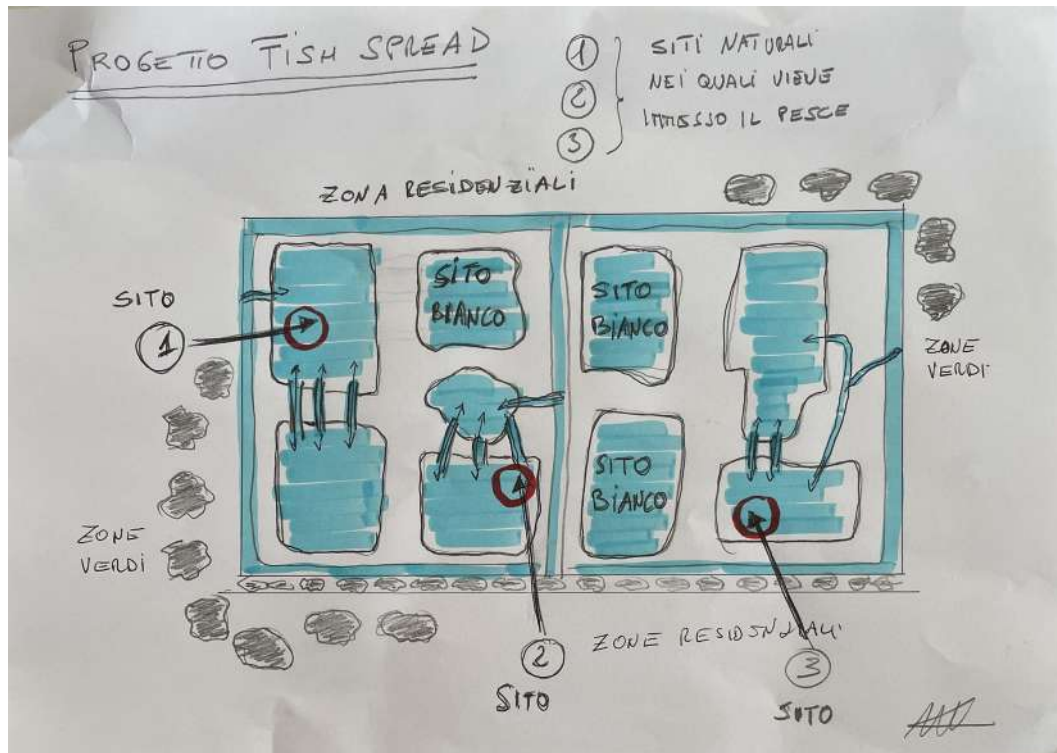 PROGETTO TISH SPREAD
1 SITI NATURALI
2 NEI QUALI VIENE
3 IMMESSO IL PESCE
ZONA RESIDENZIALI
SITO
1
SITO
BIANCO
SITO
BIANCO
ZONE
VERDI
SITO
BIANCO
ZONE
VERDI
ZONE RESIDENZIALI
2
SITO
3
SITO